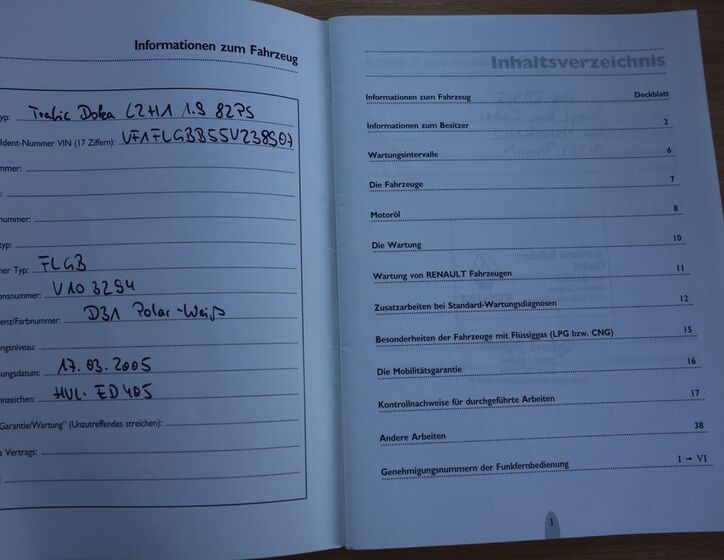 Informationen zum Fahrzeug
yp: Trafic Doka L2H1 1.9 82PS
Ident-Nummer VIN (17 Ziffern): VF1FLGBB55V238507
mmer:
:
nummer:
typ:
her Typ: FLGB
onsnummer: V103294
enz/Farbnummer: D31 Polar-Weiß
ungsniveau:
ungsdatum: 17.03.2005
nnzeichen: HVL-ED405
Garantie/Wartung" (Unzutreffendes streichen):
s Vertrags:
:
Inhaltsverzeichnis
Informationen zum Fahrzeug Deckblatt
Informationen zum Besitzer 2
Wartungsintervalle 6
Die Fahrzeuge 7
Motoröl 8
Die Wartung 10
Wartung von RENAULT Fahrzeugen 11
Zusatzarbeiten bei Standard-Wartungsdiagnosen 12
Besonderheiten der Fahrzeuge mit Flüssiggas (LPG bzw. CNG) 15
Die Mobilitätsgarantie 16
Kontrollnachweise für durchgeführte Arbeiten 17
Andere Arbeiten 38
Genehmigungsnummern der Funkfernbedienung I → VI
1